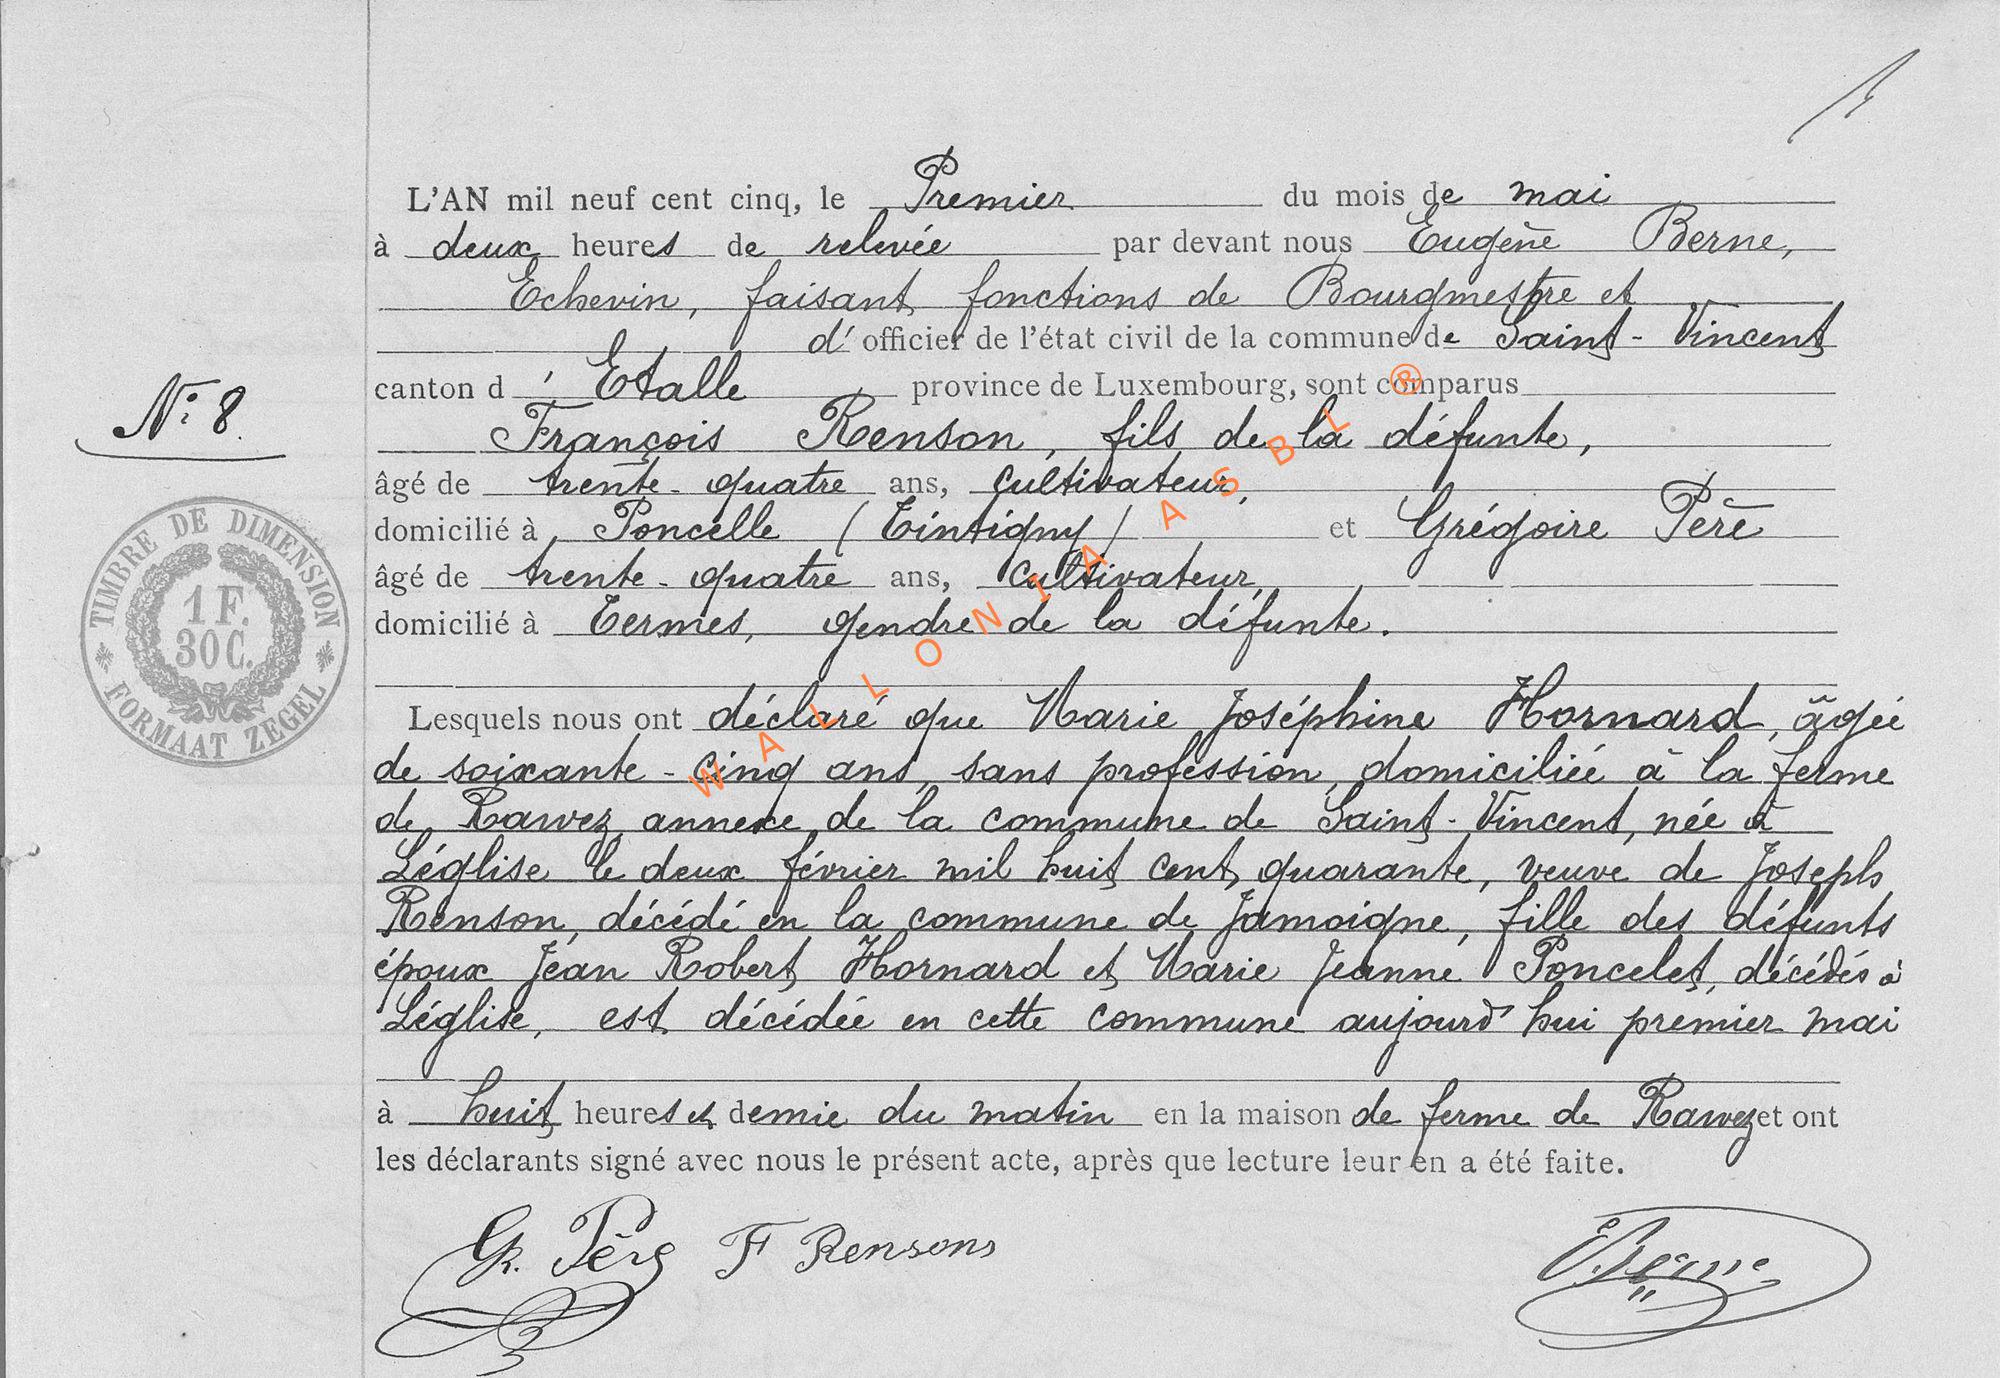 L'AN mil neuf cent cinq, le Premier du mois de mai
à deux heures de relevée par devant nous Eugène Berne,
Echevin, faisant fonctions de Bourgmestre et
d' officier de l'état civil de la commune de Saint-Vincent
canton d' Etalle province de Luxembourg, sont comparus
N° 8.
François Renson, fils de la défunte,
âgé de trente-quatre ans, cultivateur,
domicilié à Poncelle (Tintigny) et Grégoire Père
âgé de trente-quatre ans, cultivateur,
domicilié à Termes, gendre de la défunte.
TIMBRE DE DIMENSION
1 F.
30 C.
FORMAAT ZEGEL
Lesquels nous ont déclaré que Marie Joséphine Hornard, âgée
de soixante-cinq ans, sans profession, domiciliée à la ferme
de Rawez annexe de la commune de Saint-Vincent, née à
Léglise le deux février mil huit cent quarante, veuve de Joseph
Renson, décédé en la commune de Jamoigne, fille des défunts
époux Jean Robert Hornard et Marie Jeanne Poncelet, décédés à
Léglise, est décédée en cette commune aujourd'hui premier mai
à huit heures et demie du matin en la maison de ferme de Rawez et ont
les déclarants signé avec nous le présent acte, après que lecture leur en a été faite.
G. Père F Rensons
E. Berne
WALLONIA ASBL ®